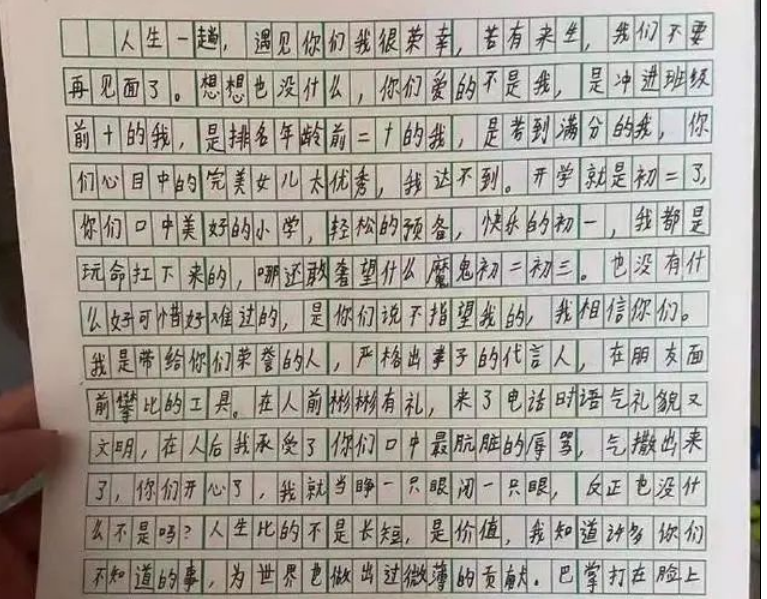 人生一趟，遇见你们我很荣幸，若有来生，我们不要
再见面了。想想也没什么，你们爱的不是我，是冲进班级
前十的我，是排名年龄前二十的我，是考到满分的我，你
们心目中的完美女儿太优秀，我达不到。开学就是初二了，
你们口中美好的小学，轻松的预备，快乐的初一，我都是
玩命扛下来的，哪还敢奢望什么魔鬼初二初三。也没有什
么好可惜好难过的，是你们说不指望我的，我相信你们。
我是带给你们荣誉的人，严格出事子的代言人，在朋友面
前攀比的工具。在人前彬彬有礼，来了电话时语气礼貌又
文明，在人后我承受了你们口中最肮脏的辱骂，气撒出来
了，你们开心了，我就当睁一只眼闭一只眼，反正也没什
么不是吗？人生比的不是长短，是价值，我知道许多你们
不知道的事，为世界也做出过微薄的贡献。巴掌打在脸上